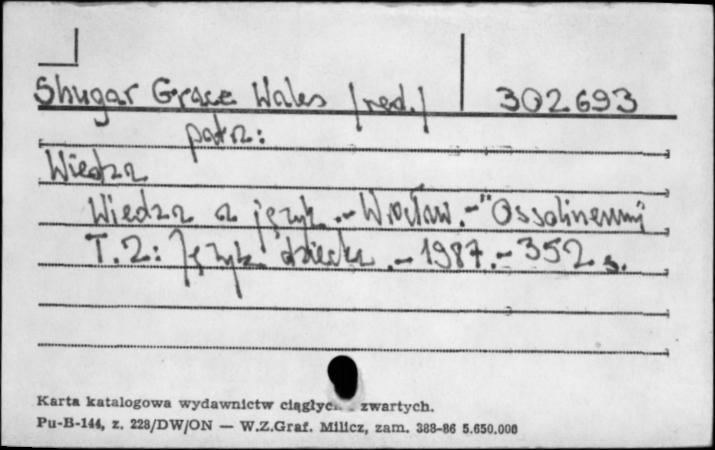 Shugar Grace Wales /red./ 302693
patrz:
Wiedza
Wiedza a język .- Wrocław.- "Ossolineum"
T. 2: Język dziecka .- 1987.- 352 s.
Karta katalogowa wydawnictw zwartych.
Pu-B-144, z. 228/DW/ON — W.Z.Graf. Milicz, zam. 388-86 5.650.000